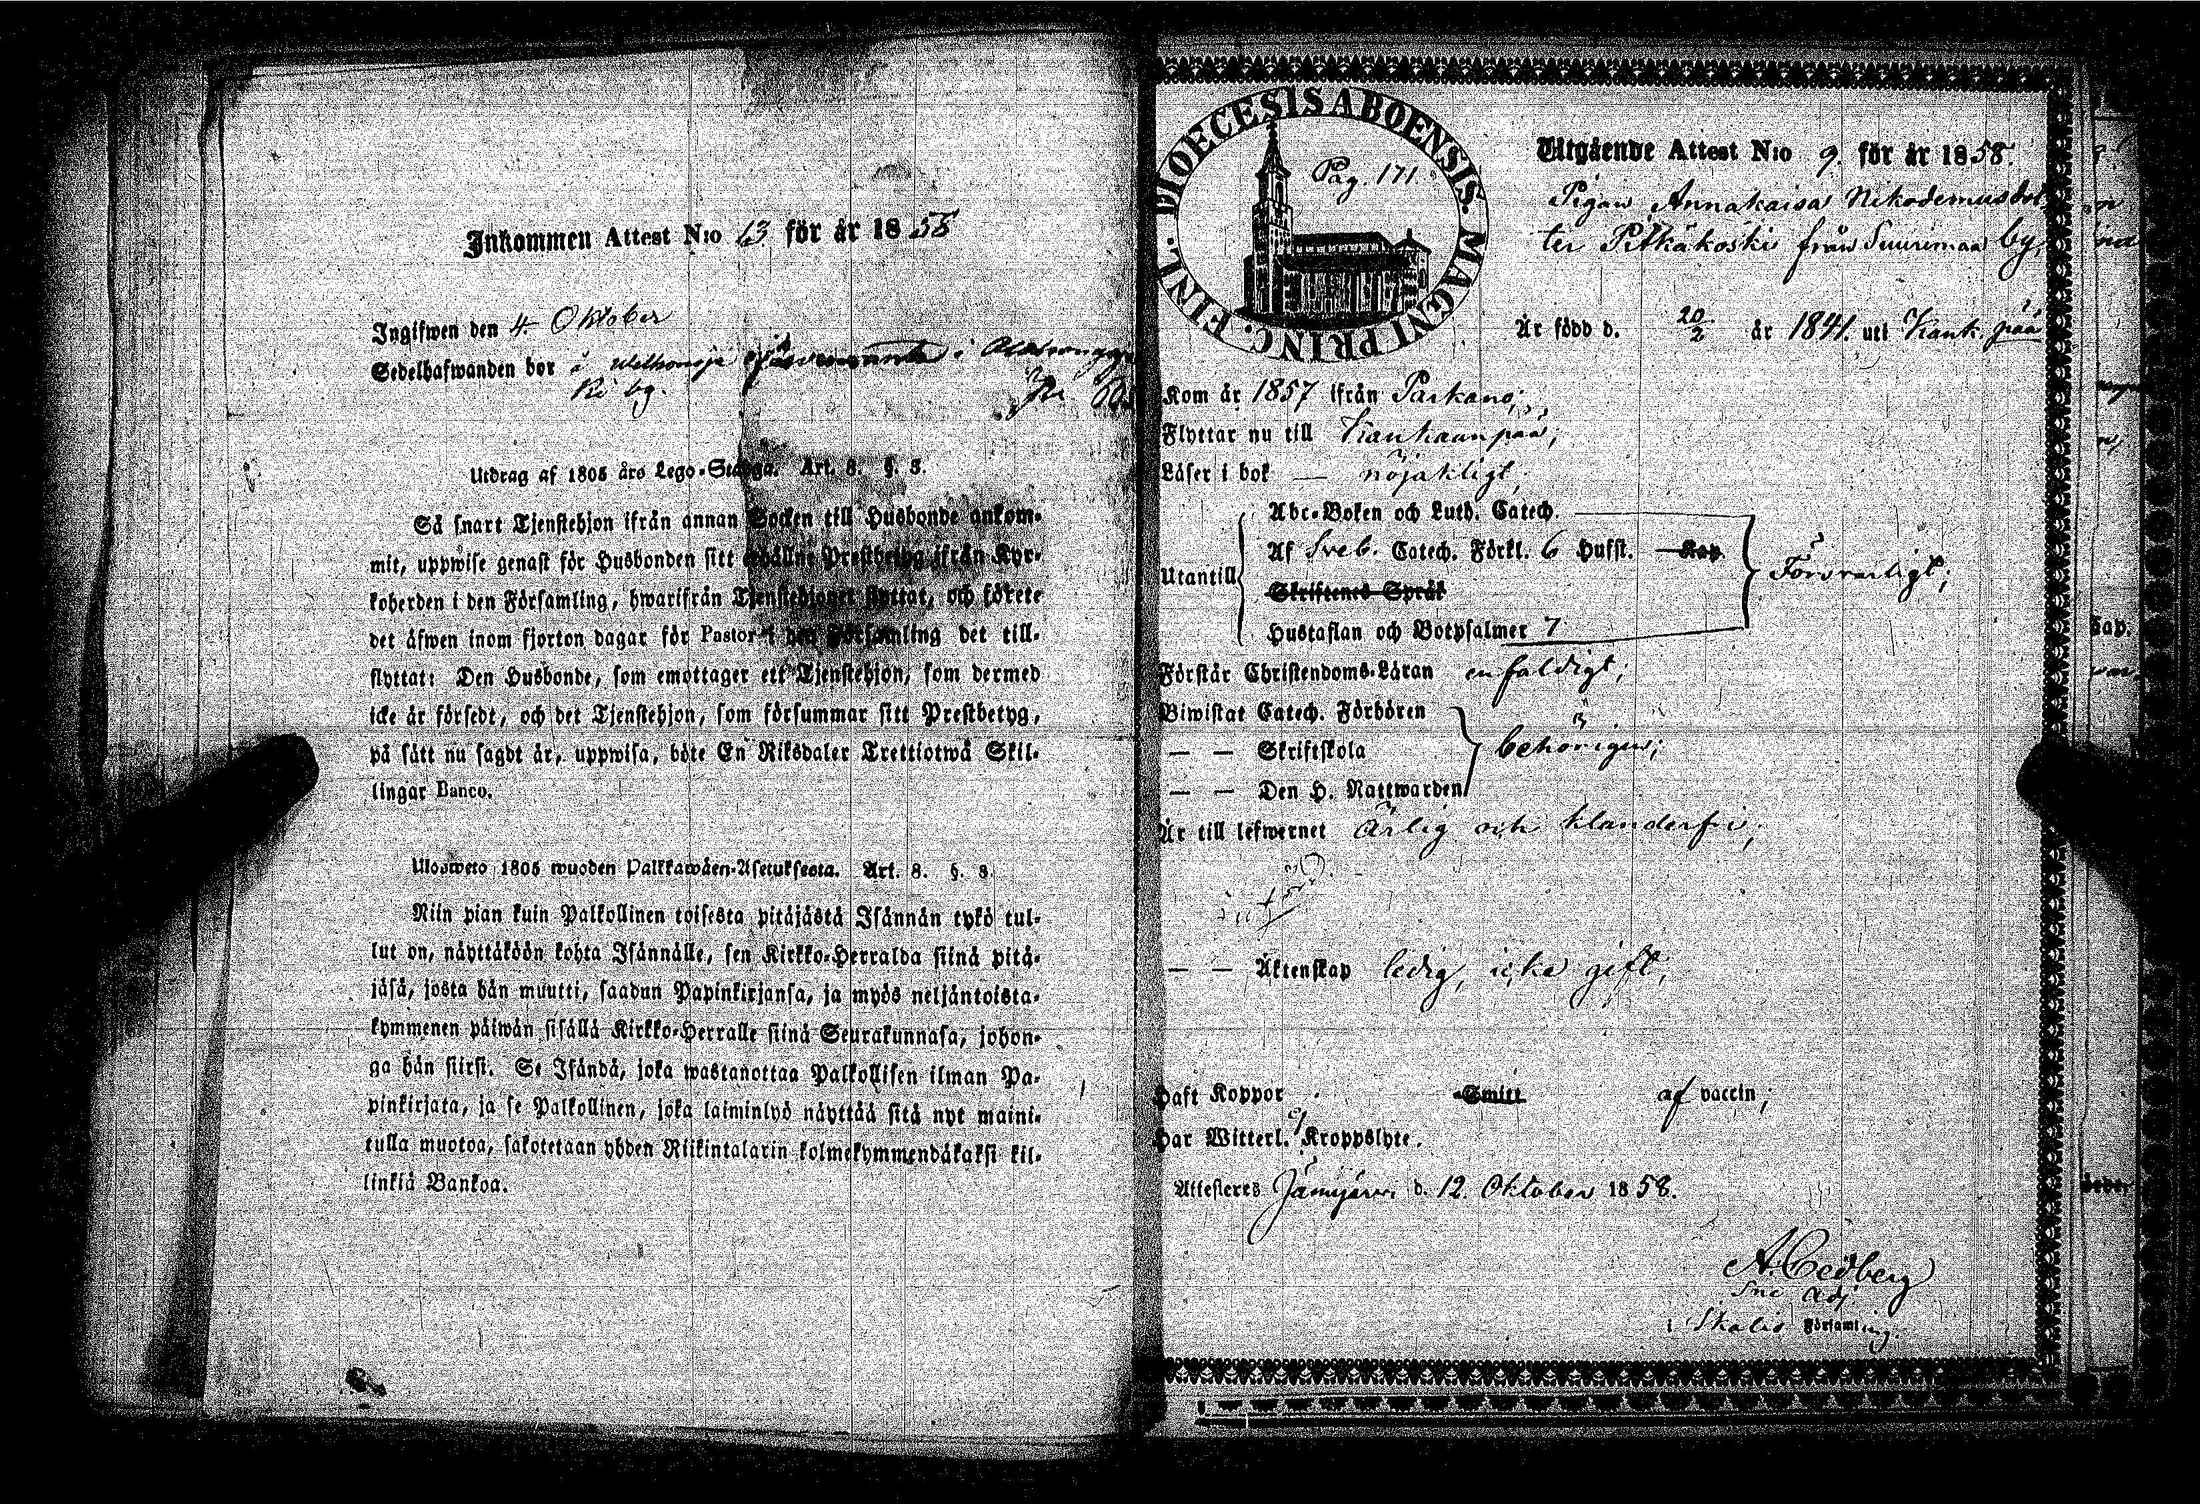 Inkommen Attest N:o 13 för år 1858
Ingifwen den 4 Oktober
Sedelhafwanden bor å i
by.
Utdrag af 1805 års Lego-Stadga. Art. 8. §. 3.
Så snart Tjenstehjon ifrån annan Socken till Husbonde ankom-
mit, uppwise genast för Husbonden sitt erhållne Prestbetyg ifrån Kyr-
koherden i den Församling, hwarifrån Tjenstehjonet flyttat, och förete
det äfwen inom fjorton dagar för Pastor i den Församling det till-
flyttat: Den Husbonde, som emottager ett Tjenstehjon, som dermed
icke är försedt, och det Tjenstehjon, som försummar sitt Prestbetyg,
på sätt nu sagdt är, uppwisa, böte En Riksdaler Trettiotwå Skil-
lingar Banco.
Ulosweto 1805 wuoden Palkkawäen-Asetuksesta. Art. 8. §. 3.
Niin pian kuin Palkollinen toisesta pitäjästä Isännän tykö tul-
lut on, näyttäköön kohta Isännälle, sen Kirkko-Herralda siinä pitä-
jäsä, josta hän muutti, saadun Papinkirjansa, ja myös neljäntoista-
kymmenen päiwän sisällä Kirkko-Herralle siinä Seurakunnasa, johon-
ga hän siirsi. Se Isändä, joka wastanottaa Palkollisen ilman Pa-
pinkirjata, ja se Palkollinen, joka laiminlyö näyttää sitä nyt maini-
tulla muotoa, sakotetaan yhden Riikintalarin kolmekymmendäkaksi kil-
linkiä Bankoa.
DIOECESIS ABOENSIS. MAGNI PRINC. FINL.
Pag. 171.
Utgående Attest N:o 9. för år 1858.
Pigan Annakaisa Nikodemusdot
ter Pitkäkoski från Suurimaa by,
Är född d. 20/2 år 1841. uti Kankpää
Kom år 1857 ifrån Parkano;
Flyttar nu till Kankaanpää;
Läser i bok — nöjaktligt,
Utantill
Abc-Boken och Luth. Catech.
Af Sveb. Catech. Förkl. 6 Hufst. Kap.
Skriftenes Språk
Hustaflan och Botpsalmer 7
Försvarligt;
Förstår Christendoms-Läran enfaldigt;
Biwistat Catech. Förhören
— — Skriftskola
— — Den H. Nattwarden
behörigen;
Är till lefwernet Ärlig och klanderfri;
— — Äktenskap ledig, icke gift,
Haft Koppor Smitt af vaccin;
Har Witterl. ej Kroppslyte.
Attesteres Jämijärvi d. 12. Oktober 1858.
A. Cedberg
Adj.
i Ikalis Församling.